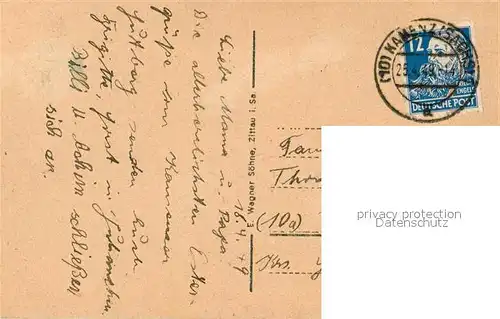 16.4.49
Liebe Mama u. Papa
Die allerherzlichsten Oster-
grüße vom Kamenzer
Hutberg senden Euch
Brigitte, Horst u. Gretchen.
Willi u. Achim schließen
sich an.
E. Wagner Söhne, Zittau i. Sa.
(10) KAMENZ (SACHS)
a
12
ENGELS
DEUTSCHE POST
Fam
Tho
(10a)
Krs.
privacy protection
Datenschutz